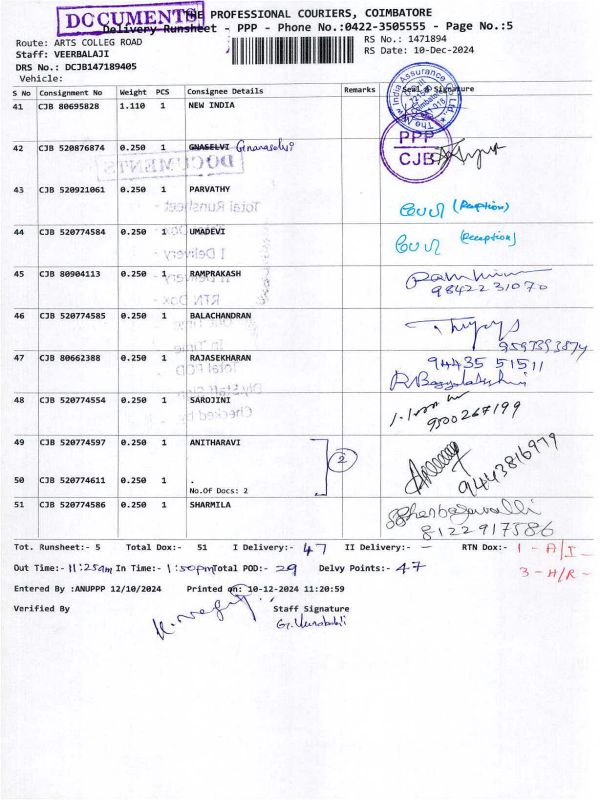 DOCUMENTS
THE PROFESSIONAL COURIERS, COIMBATORE
Delivery Runsheet - PPP - Phone No.:0422-3505555 - Page No.:5
Route: ARTS COLLEG ROAD
RS No.: 1471894
Staff: VEERBALAJI
RS Date: 10-Dec-2024
DRS No.: DCJB147189405
Vehicle:
S No Consignment No Weight PCS Consignee Details Remarks Seal & Signature
41 CJB 80695828 1.110 1 NEW INDIA
The New India Assurance Co. Ltd.
PPP
CJB
42 CJB 520876874 0.250 1 GNASELVI Gnanaselvi
DOCUMENTS
43 CJB 520921061 0.250 1 PARVATHY
Total Runsheet:-
(Reception)
44 CJB 520774584 0.250 1 UMADEVI
(Reception)
I Delivery -
45 CJB 80904113 0.250 1 RAMPRAKASH
II Delivery -
9842231070
RTN Dox -
46 CJB 520774585 0.250 1 BALACHANDRAN
In Time -
9597393874
47 CJB 80662388 0.250 1 RAJASEKHARAN
Total POD
94435 51511
48 CJB 520774554 0.250 1 SAROJINI
Checked by
9500267199
49 CJB 520774597 0.250 1 ANITHARAVI
2
9443816979
50 CJB 520774611 0.250 1 .
No.Of Docs: 2
51 CJB 520774586 0.250 1 SHARMILA
8122917586
Tot. Runsheet:- 5 Total Dox:- 51 I Delivery:- 47 II Delivery:- — RTN Dox:- 1 - A/I -
Out Time:- 11:25am In Time:- 1:50pm Total POD:- 29 Delvy Points:- 47
3 - H/R -
Entered By :ANUPPP 12/10/2024 Printed on: 10-12-2024 11:20:59
Verified By Staff Signature